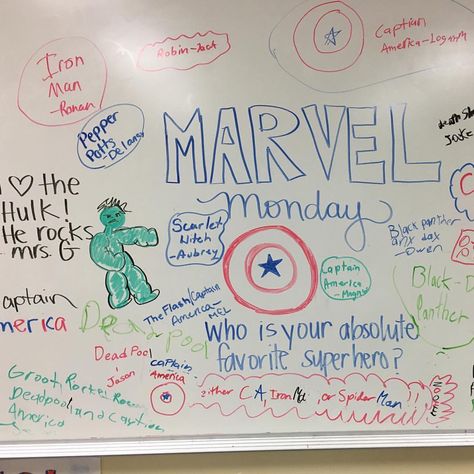 Iron
Man
-Ronan
Robin-Jact
Captian
America-Logan M
Pepper
Potts
Delaney
MARVEL
Monday
death St
Jake
I ♡ the
Hulk!
He rocks
-mrs. G
Scarlet
Witch
-Aubrey
Captain
America
-Magnus
Black panther
anx dax
-Owen
Black-
Panther
Captain
America
Deadpool
The Flash/Captain
America-
MEL
Who is your absolute
favorite superhero?
Dead Pool
-Jason
captain
America
Groot, Rocket
Deadpool and Captian
America
either CA, Iron Man, or Spider Man!!